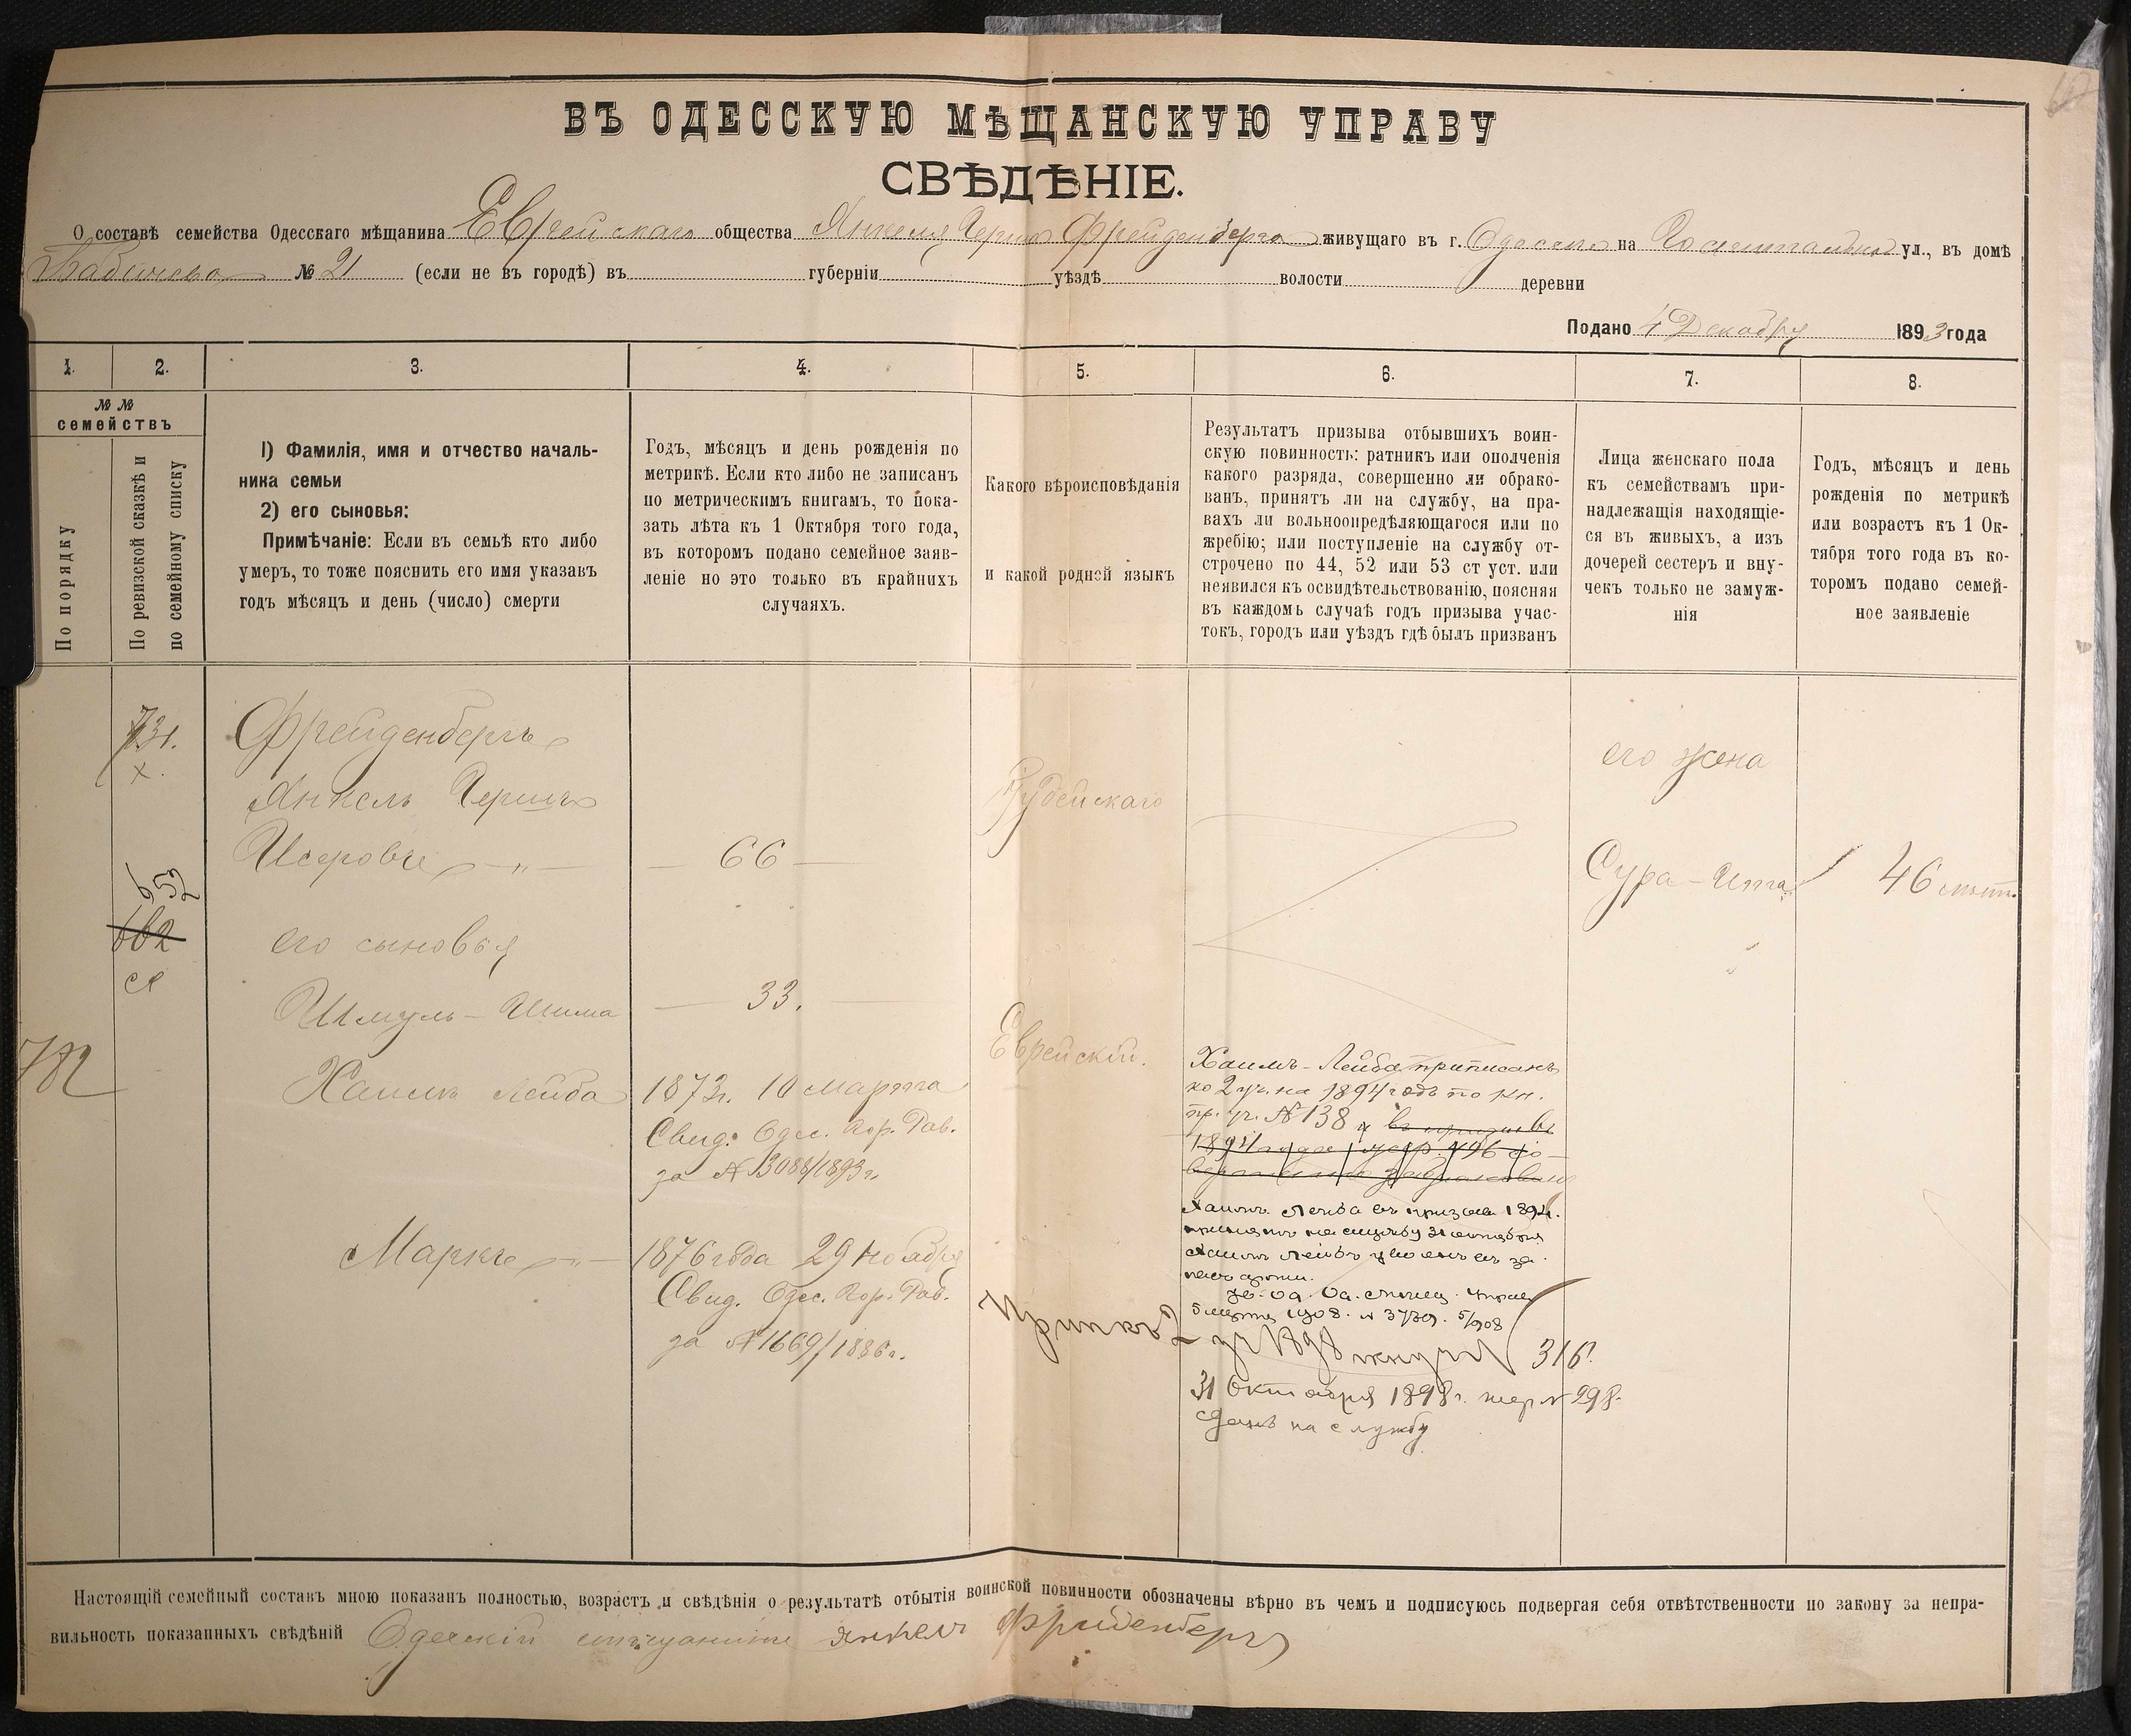 ВЪ ОДЕССКУЮ МѢЩАНСКУЮ УПРАВУ
СВѢДѢНІЕ.
О составѣ семейства Одесскаго мѣщанина Еврейскаго общества Янкеля Герша Фрейденберга живущаго въ г. Одессе на Госпитальной ул., въ домѣ
№ 21 (если не въ городѣ) въ губерніи уѣздѣ волости деревни
Подано 4 Декабря 1893 года
1. 2. 3. 4. 5. 6. 7. 8.
№ №
семействъ
По порядку
По ревизской сказкѣ и
по семейному списку
1) Фамилія, имя и отчество началь-
ника семьи
2) его сыновья:
Примѣчаніе: Если въ семьѣ кто либо
умеръ, то тоже пояснить его имя указавъ
годъ мѣсяцъ и день (число) смерти
Годъ, мѣсяцъ и день рожденія по
метрикѣ. Если кто либо не записанъ
по метрическимъ книгамъ, то пока-
зать лѣта къ 1 Октября того года,
въ которомъ подано семейное заяв-
леніе но это только въ крайнихъ
случаяхъ.
Какого вѣроисповѣданія
и какой родной языкъ
Результатъ призыва отбывшихъ воин-
скую повинность: ратникъ или ополченія
какого разряда, совершенно ли обрако-
ванъ, принятъ ли на службу, на пра-
вахъ ли вольноопредѣляющагося или по
жребію; или поступленіе на службу от-
строчено по 44, 52 или 53 ст уст. или
неявился къ освидѣтельствованію, поясняя
въ каждомъ случаѣ годъ призыва учас-
токъ, городъ или уѣздъ гдѣ былъ призванъ
Лица женскаго пола
къ семействамъ при-
надлежащія находящіе-
ся въ живыхъ, а изъ
дочерей сестеръ и вну-
чекъ только не замуж-
нія
Годъ, мѣсяцъ и день
рожденія по метрикѣ
или возрастъ къ 1 Ок-
тября того года въ ко-
торомъ подано семей-
ное заявленіе
731.
х.
652
662
782
Фрейденбергъ
Янкель Гершъ
66
его сыновья
Шмуль - Шима
33.
Хаимъ Лейба
1873 г. 10 Марта
Свид. Одес. Гор. Рав.
за № 3088/1893 г.
Маркъ
1876 года 29 Ноября
Свид. Одес. Гор. Рав.
за № 1669/1886 г.
Іудейскаго
Еврейскій.
Хаимъ - Лейба приписанъ
ко 2 уч. на 1894 годъ по кн.
пр. уч. № 138 и
Хаимъ Лейба въ призывъ 1894 г.
принятъ на службу 31 октября
Хаимъ Лейба уволенъ въ за-
пасъ арміи.
5 марта 1908. № 3739. 5/908
316.
31 Октября 1898 г. жер № 298.
сданъ на службу
его жена
Сура - Ита
46 лѣтъ.
Настоящій семейный составъ мною показанъ полностью, возрастъ и свѣдѣнія о результатѣ отбытія воинской повинности обозначены вѣрно въ чемъ и подписуюсь подвергая себя отвѣтственности по закону за непра-
вильность показанныхъ свѣдѣній Одескій мещанинъ Янкель Фрейденбергъ